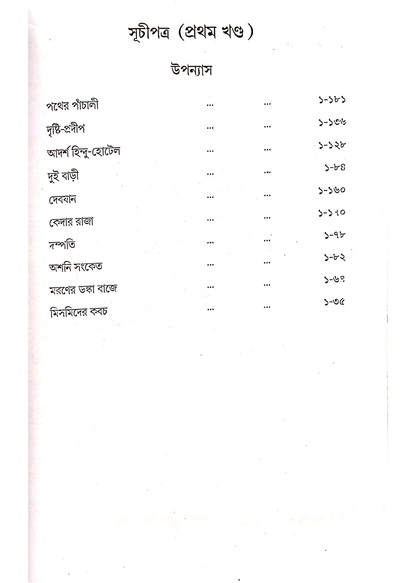 সূচীপত্র (প্রথম খণ্ড)
উপন্যাস
পথের পাঁচালী ... ... ১-১৮১
দৃষ্টি-প্রদীপ ... ... ১-১৩৬
আদর্শ হিন্দু-হোটেল ... ... ১-১২৮
দুই বাড়ী ... ... ১-৮৪
দেবযান ... ... ১-১৬০
কেদার রাজা ... ... ১-১৭০
দম্পতি ... ... ১-৭৮
অশনি সংকেত ... ... ১-৮২
মরণের ডঙ্কা বাজে ... ... ১-৬৭
মিসমিদের কবচ ... ... ১-৩৫